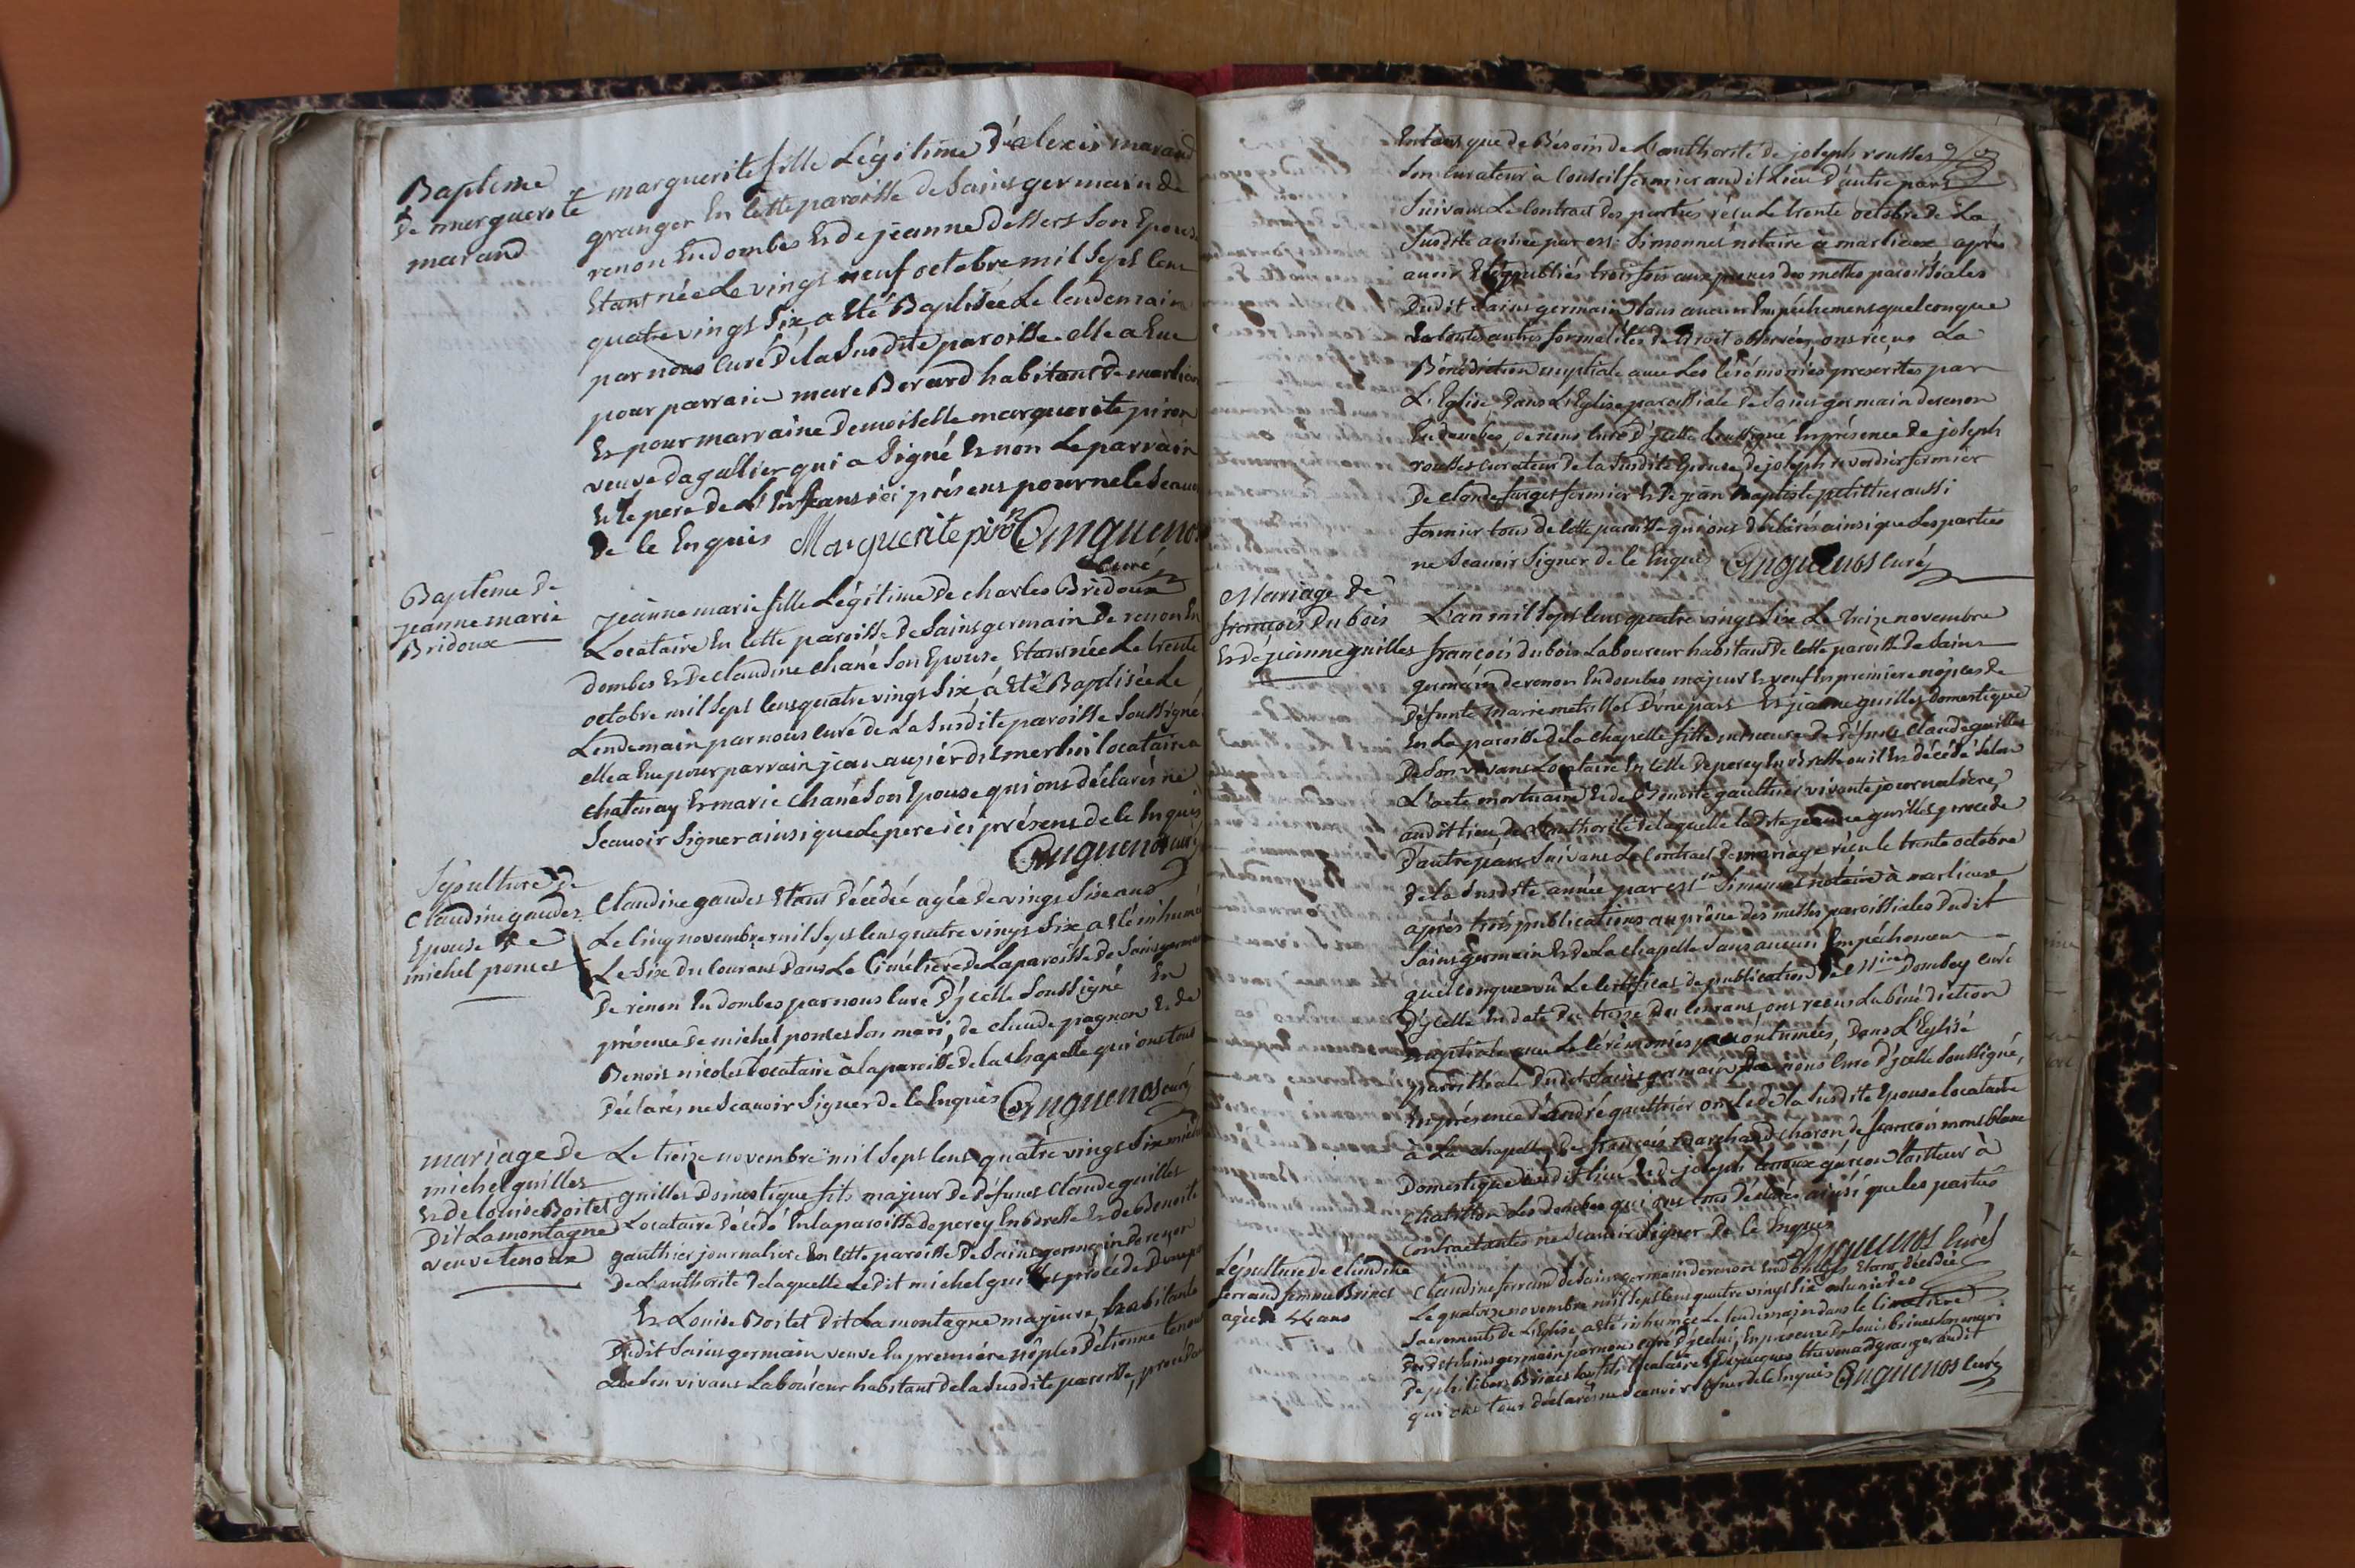 Baptême
de marguerite
marand
marguerite fille Légitime d'alexis marand
granger En cette paroisse de Saint germain de
renon En dombes Et de jeanne dessers Son Epouse
Etant née Le vingt neuf octobre mil Sept Cent
quatre vingt Six, a Eté Baptisée Le lendemain
par nous Curé de la Susdite paroisse. elle a Eue
pour parrain marc Berard habitant de marlieux
Et pour marraine demoiselle marguerite piron
veuve dagallier qui a Signé Et non Le parrain
Et le pere de L'Enfant ici présent pour ne le Scavoir
de ce Enquis Marguerite piron Cuguenos
Curé
Baptême de
jeanne marie
Bridoux
jeanne marie fille Légitime de charles Bridoux
Locataire En cette paroisse de Saint germain de renon En
dombes Et de claudine chané Son Epouse Etant née Le trente
octobre mil Sept Cent quatre vingt Six á Eté Baptisée Le
Lendemain par nous Curé de La Susdite paroisse Soussigné
elle a Eue pour parrain jean augier dit merlin locataire a
chatenay Et marie chané Son Epouse qui ont déclarés ne
Scavoir Signer ainsi que Le pere ici présent de ce Enquis
Cuguenos curé
Sépulture de
Claudine gaudet
Epouse de
michel poncet
Claudine gaudet Etant décédée agée de vingt Six ans
Le cinq novembre mil Sept Cent quatre vingt Six a Eté inhumée
Le Six du Courant dans Le Cimétiere de La paroisse de Saint germain
De renon En dombes par nous Curé D'jcelle Soussigné En
présence de michel poncet Son mari, de claude pagnon Et de
Benoit nicolet Locataire à la paroisse de la chapelle qui ont tous
Déclarés ne Scavoir Signer de ce Enquis Cuguenos curé
mariage de
michel guilles
Et de louise Boitet
dit Lamontagne
veuve tenoux
Le treize novembre mil Sept Cent quatre vingt Six michel
guilles domestique fils majeur de défunct Claude guilles
Locataire décédé En la paroisse de perey En bresse Et de Benoite
gauthier journaliere En cette paroisse de Saint germain de renon
de L'authorité de laquelle Ledit michel guilles procede D'une part
Et Louise Boitet dit Lamontagne majeure, habitante
Dudit Saint germain veuve En premiére nôpces D'étienne tenoux
De Son vivant Laboureur habitant de la Susdite paroisse, procédant
Entant que de Bésoin de L'authorité de joseph rousset
Son Curateur à Conseil fermier audit Lieu D'autre part
Suivant Le Contract des parties réçu Le trente octobre de La
Susdite année par mr. Simonnet notaire à marlieux après
avoir Eté publiés trois fois aux prones des messes paroissiales
Dudit Saint germain Sans aucun Empéchement quelconque
Et toutes autres formalités de Droit observées, ont réçus La
Bénédiction nuptiale avec Les Cérémonies prescrites par
L'Eglise dans L'Eglise paroissiale de Saint germain de renon
En dombes, de nous Curé D'jcelle Soussigné En présence de joseph
rousset curateur de la Susdite Epouse, de joseph riverdier fermier
De claude farget fermier Et de jean Baptiste petitier aussi
fermier tous de cette paroisse qui ont déclarés ainsi que Les parties
ne Scavoir Signer de ce Enquis Cuguenos curé
Mariage de
françois Dubois
Et de jeanne guilles
L'an mil Sept Cent quatre vingt Six Le treize novembre
françois dubois Laboureur habitant de cette paroisse de Saint
germain de renon En dombes majeur Et veuf En premiere nôpces de
Défunte Marie D'une part Et jeanne guilles domestique
En La paroisse de la chapelle fille mineure de défunt Claude guilles
De Son vivant Locataire En Celle de perey En bresse ou il Est décédé Selon
L'acte mortuaire Et de Benoite gauthier vivante journaliere,
audit lieu, de L'authorité de laquelle ladite jeanne guilles procede
D'autre part Suivant Le Contract de mariage réçu le trente octobre
de la Susdite année par mr. Simonnet notaire à marlieux
après trois publications au prône des messes paroissiales dudit
Saint germain Et de La chapelle Sans aucun Empéchement
quelconque vû Le Certificat de publication de mre Dombey Curé
D'jcelle En date du treize du Courant, ont reçus La bénédiction
nuptiale avec Les Cérémonies accoutumées, Dans L'Eglise
paroissiale dudit Saint germain par nous Curé D'jcelle Soussigné,
En présence d'andré gauthier oncle de la Susdite Epouse locataire
à La chapelle, de françois marchand charon de françois montblanc
Domestique audit lieu Et de joseph garcon à
Chatillon Les dombes qui ont tous Déclarés ainsi que les parties
Contractantes ne Scavoir Signer De Ce Enquis
Cuguenos Curé
Sépulture de Claudine
ferrand femme Brinet
agée de 44 ans
Claudine ferrand de Saint germain de renon En dombes Etant décédée
Le quatorze novembre mil Sept Cent quatre vingt Six munie des
Sacrements de L'Eglise, a Eté inhumée Le lendemain dans le Cimetiere
Dudit Saint germain par nous Curé D'jcelui En présence De Louis Brinet Son mari
De philibert Brinet Son fils Locataire Et de jacques granger audit
qui ont tous déclarés ne Scavoir Signer de ce Enquis Cuguenos Curé